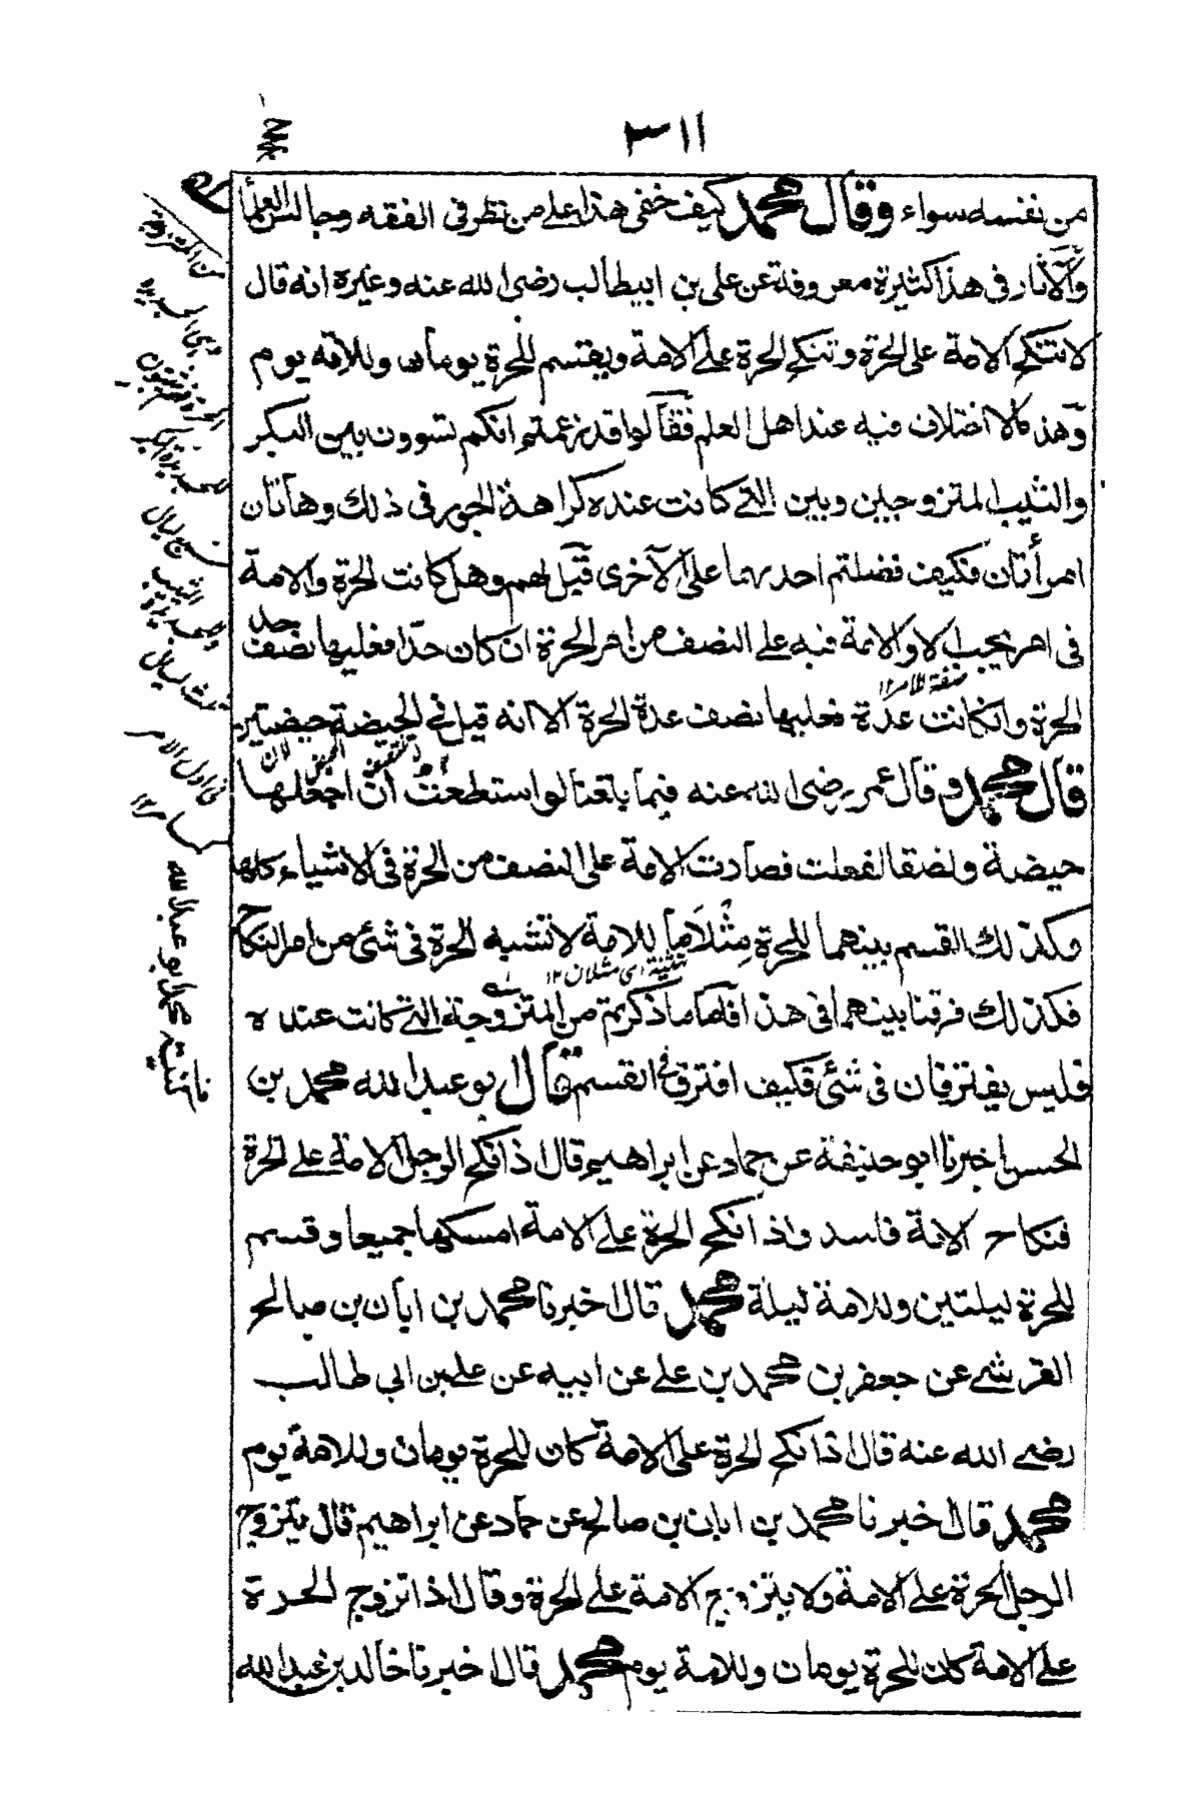 ٣١١
من نفسه سواء وقال محمد كيف خفى هذا على من نظر فى الفقه وجالس العلماء
والآثار فى هذا كثيرة معروفة عن على بن ابيطالب رضى الله عنه وغيره انه قال
لا تنكح الامة على الحرة وتنكح الحرة على الامة ويقسم للحرة يومان وللامة يوم
وهذا مالا اختلاف فيه عند اهل العلم فقالوا قد زعمتم انكم تسوون بين البكر
والثيب المتزوجين وبين التى كانت عنده كراهة الجور فى ذلك وهاتان
امرأتان فكيف فضلتم احدىهما على الآخرى قيل لهم وهل كانت الحرة والامة
فى امر يجب الا والامة فيه على النصف من امر الحرة ان كان حدا فعليها نصف حد
الحرة وانكانت عدة فعليها نصف عدة الحرة الا انه قيل فى الحيضة حيضتين
قال محمد وقال عمر رضى الله عنه فيما بلغنا لو استطعت ان اجعلها
حيضة ونصفا لفعلت فصارت الامة على النصف من الحرة فى الاشياء كلها
وكذلك القسم بينهما للحرة مثلا ما للامة لا تشبه الحرة فى شئ من امر النكاح
تثنية اى مثلان ١٢
فكذلك فرقنا بينهما فى هذا فاما ما ذكرتم من المتزوجة التى كانت عنده
فليس يفترقان فى شئ فكيف افترق فى القسم قال ابو عبد الله محمد بن
الحسن اخبرنا ابو حنيفة عن حماد عن ابراهيم قال اذا نكح الرجل الامة على الحرة
فنكاح الامة فاسد واذا نكح الحرة على الامة امسكهما جميعا وقسم
للحرة ليلتين وللامة ليلة محمد قال اخبرنا محمد بن ابان بن صالح
القرشى عن جعفر بن محمد بن على عن ابيه عن على بن ابى طالب
رضى الله عنه قال اذا نكح الحرة على الامة كان للحرة يومان وللامة يوم
محمد قال اخبرنا محمد بن ابان بن صالح عن حماد عن ابراهيم قال يتزوج
الرجل الحرة على الامة ولا يتزوج الامة على الحرة وقال اذا تزوج الحرة
على الامة كان للحرة يومان وللامة يوم محمد قال اخبرنا خالد بن عبد الله
كنية محمد ابو عبد الله